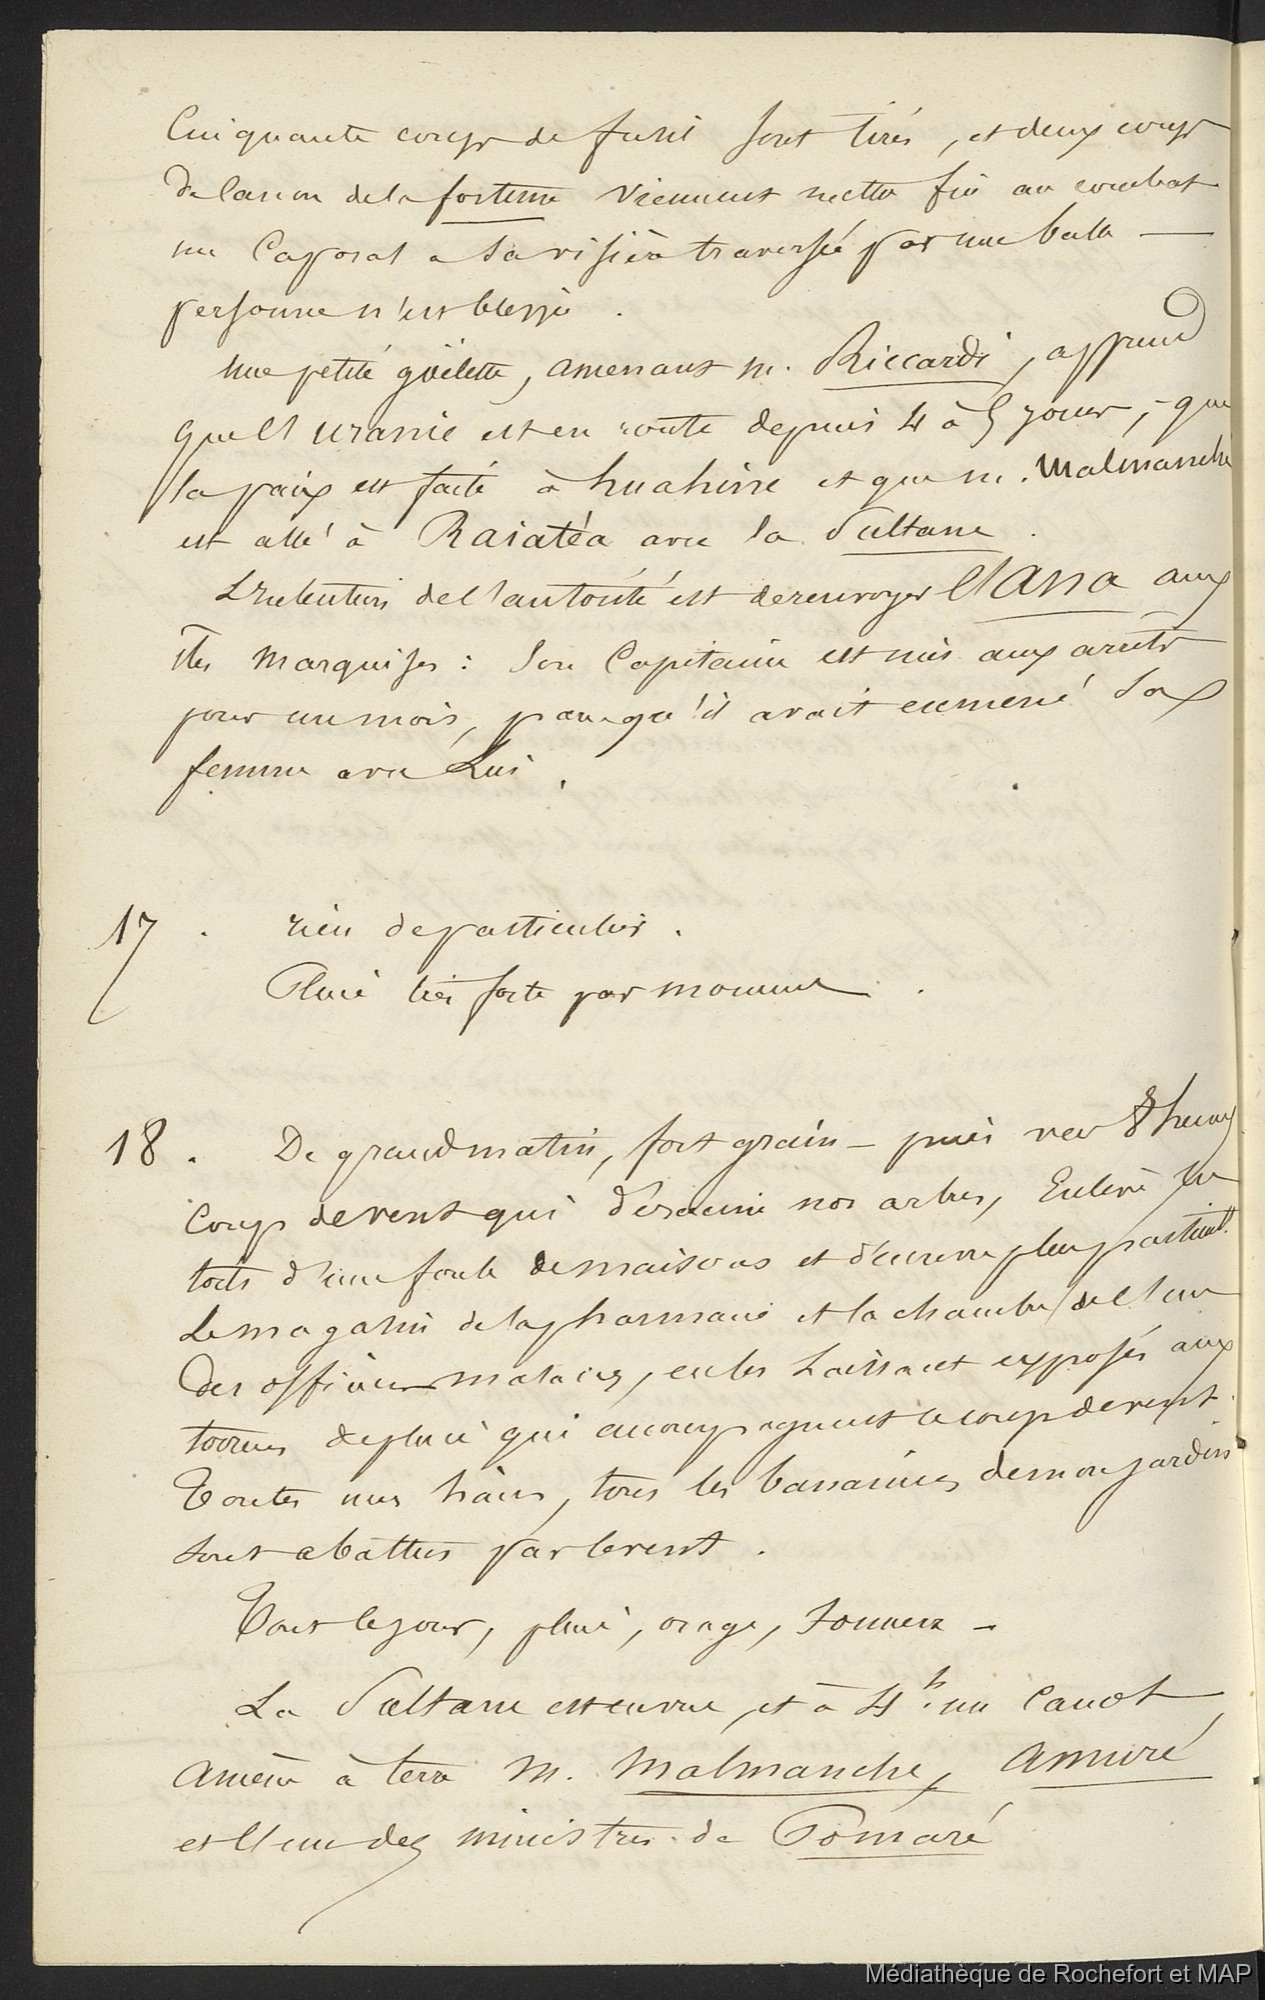 Cinquante coups de fusil sont tirés, et deux coups
de Canon de la fortune viennent mettre fin au combat
un Caporal a sa visière traversée par une balle —
personne n'est blessé.
Une petite goëlette, amenant M. Riccardi, apprend
que l'uranie est en route depuis 4 à 5 jours, - que
la paix est faite à huahine et que M. Malmanche
est allé à Raiatéa avec la Sultane.
L'intention de l'autorité est de renvoyer l'Ana aux
îles Marquises : son Capitaine est mis aux arrêts
pour un mois, parcequ'il avait emmené sa
femme avec Lui.
17. rien de particulier.
Pluie très forte par moment.
18. De grand matin, fort grain — puis vers 8 heures
coup de vent qui déracine nos arbres, Enlève les
toits d'une foule de maisons et découvre plus particult.
Le magasin de la pharmacie et la chambre de l'un
des officiers malades, en les Laissant exposés aux
torrens de pluie qui accompagnent le coup de vent.
Toutes nos haies, tous les bananiers de mon jardin
sont abattus par le vent.
Tout le jour, pluie, orage, Tonnerre —
La Sultane est en vue, et à 4h. un Canot
amène à terre M. Malmanche, Amuré
et l'un des ministres de Pómaré
Médiathèque de Rochefort et MAP